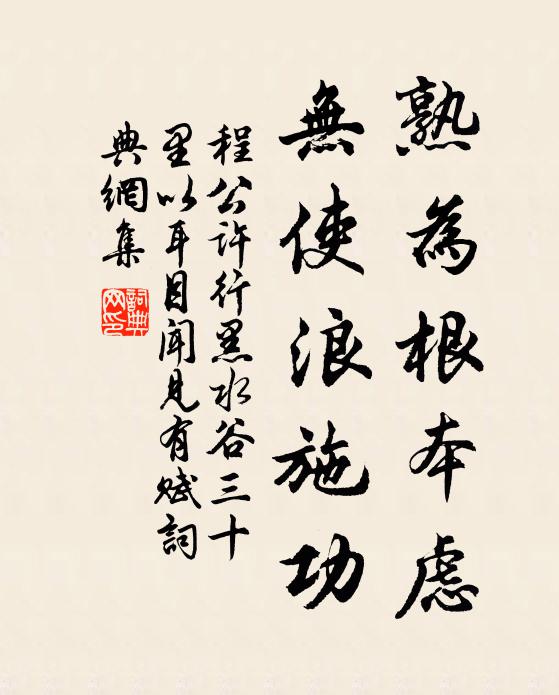 熟為根本慮
無使浪施功
程公許行黑水谷三十
里以耳目聞見有賦詞
典網集
詞典網印